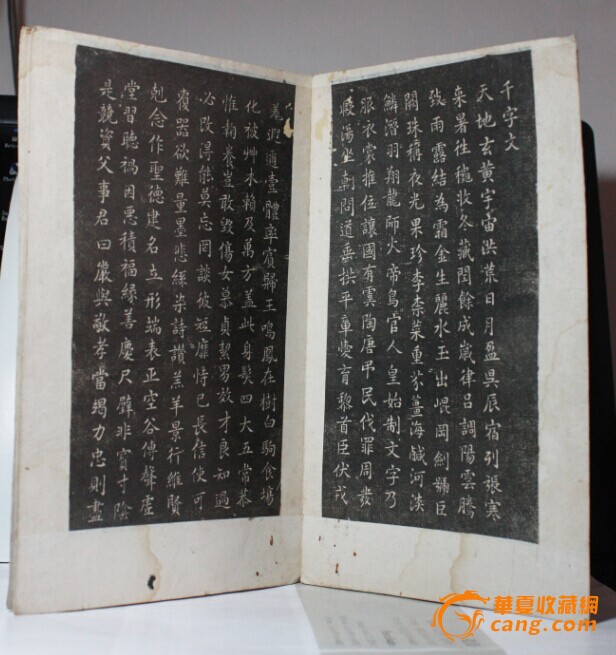 千字文
天地玄黃宇宙洪荒日月盈昃辰宿列張寒
来暑往穐收冬藏閏餘成歲律呂調陽雲騰
致雨露結為霜金生麗水玉出崐岡劍號臣
闕珠稱夜光果珍李柰菜重芥薑海鹹河淡
鱗潛羽翔龍師火帝鳥官人皇始制文字乃
服衣裳推位讓國有虞陶唐弔民伐罪周發
殷湯坐朝問道垂拱平章愛育黎首臣伏戎
羌遐邇壹體率賓歸王鳴鳳在樹白駒食場
化被艸木賴及萬方盖此身髮四大五常恭
惟鞠養豈敢毀傷女慕貞絜男效才良知過
必改得能莫忘罔談彼短靡恃己長信使可
覆器欲難量墨悲絲染詩讚羔羊景行維賢
剋念作聖德建名立形端表正空谷傳聲虛
堂習聽禍因惡積福緣善慶尺璧非寶寸陰
是競資父事君曰嚴與敬孝當竭力忠則盡
華夏收藏網
cang.com